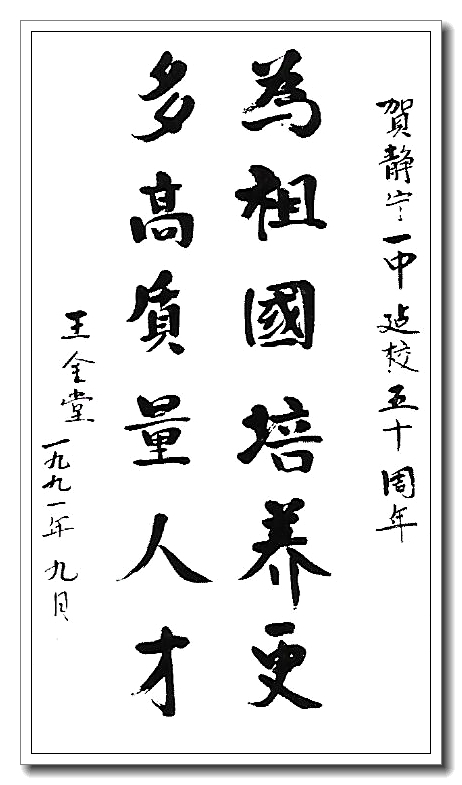 賀静宁一中建校五十周年
為祖國培养更
多高质量人才
王金堂
一九九一年九月